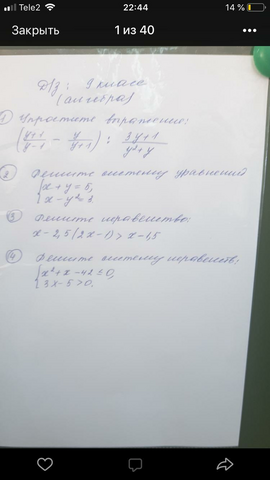 Tele2 22:44 14 %
Закрыть 1 из 40
Д/з: 9 класс
(алгебра)
① Упростите выражение:
(y+1/y-1 - y/y+1) : 3y+1/y²+y
② Решите систему уравнений
{x+y=5,
x-y²=3
③ Решите неравенство:
x-2,5(2x-1)>x-1,5
④ Решите систему неравенств:
{x²+x-42≤0,
3x-5>0.